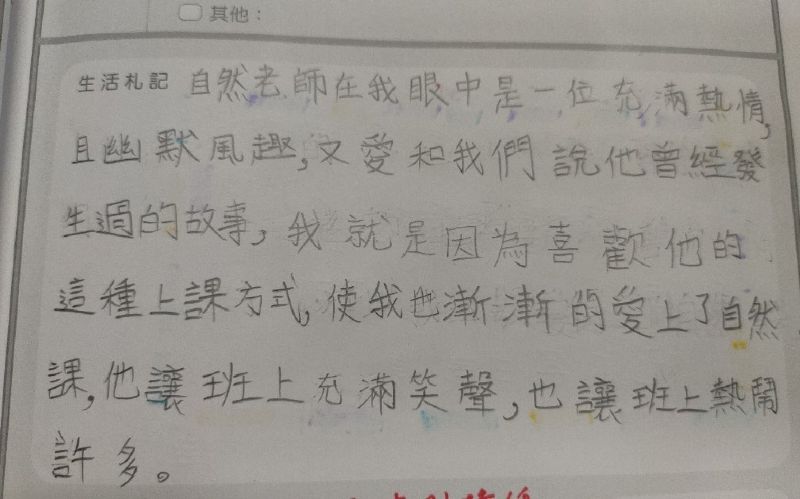 其他：
生活札記 自然老師在我眼中是一位充滿熱情,
且幽默風趣,又愛和我們說他曾經發
生過的故事,我就是因為喜歡他的
這種上課方式,使我也漸漸的愛上了自然
課,他讓班上充滿笑聲,也讓班上熱鬧
許多。